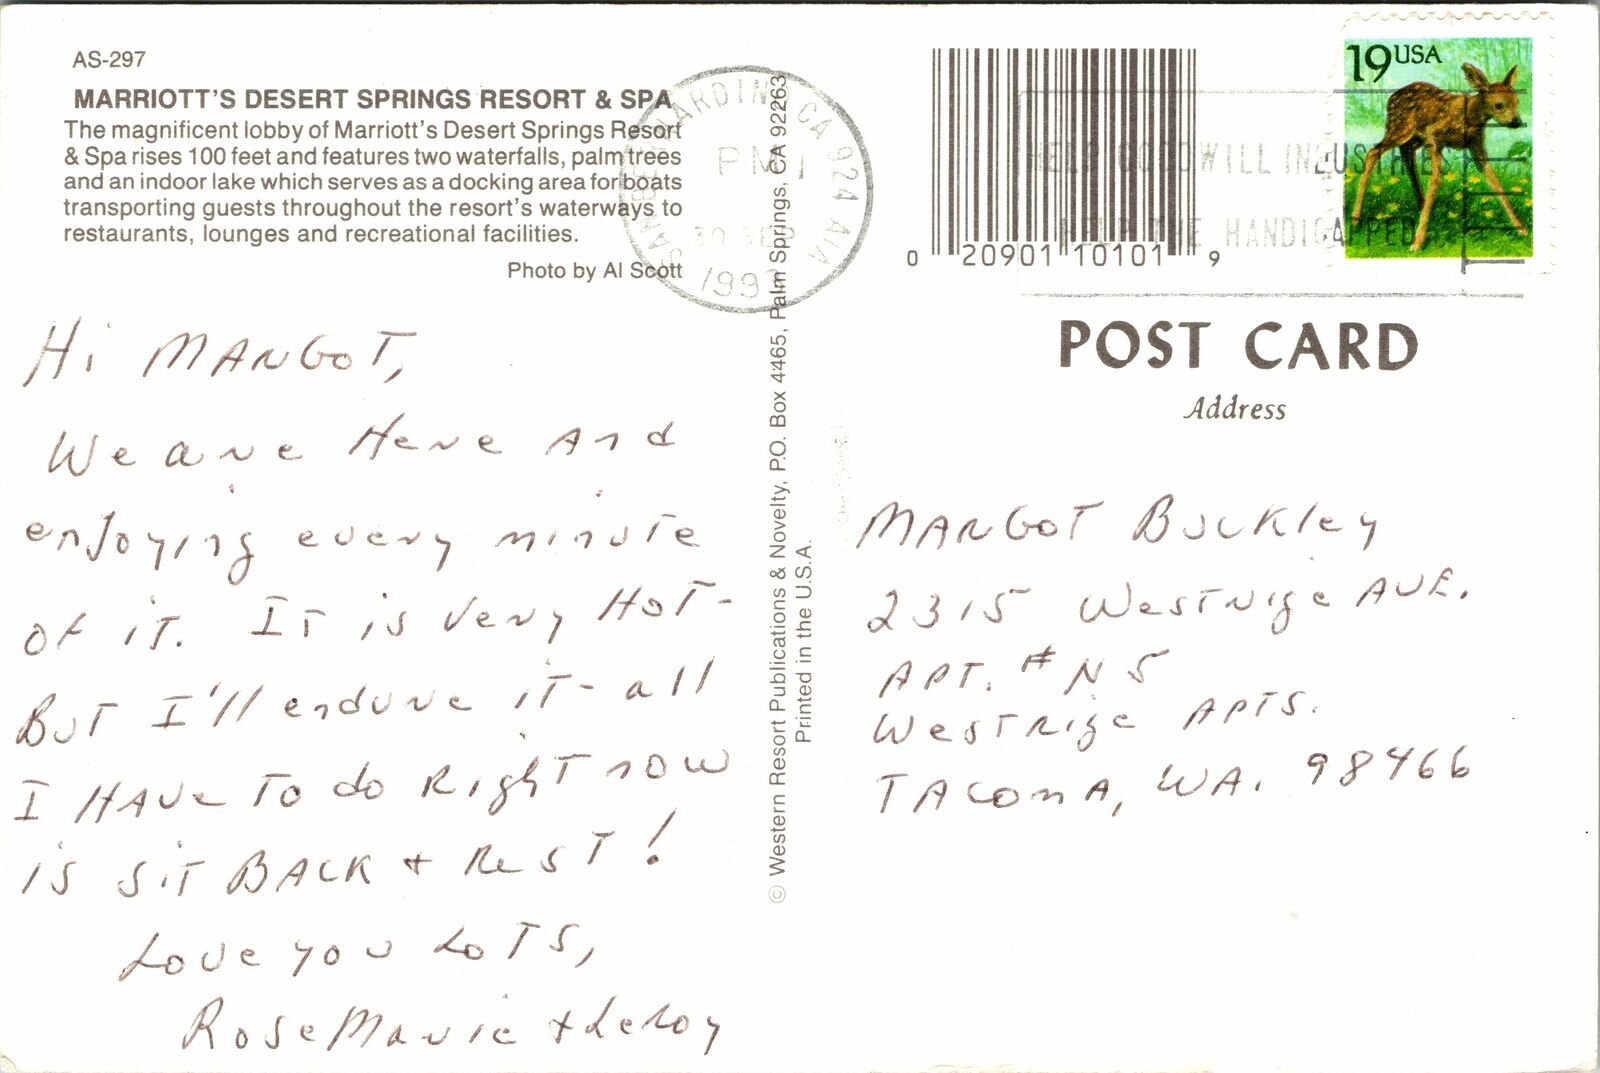 AS-297
MARRIOTT'S DESERT SPRINGS RESORT & SPA
The magnificent lobby of Marriott's Desert Springs Resort
& Spa rises 100 feet and features two waterfalls, palm trees
and an indoor lake which serves as a docking area for boats
transporting guests throughout the resort's waterways to
restaurants, lounges and recreational facilities.
Photo by Al Scott
Hi MARGOT,
We are Here And
enJoying every minute
of iT. IT is Very HoT-
BuT I'll endure iT- all
I HAve To do RighT now
is siT BACK + ResT!
Love you LoTS,
RoseMarie + LeRoy
© Western Resort Publications & Novelty, P.O. Box 4465, Palm Springs, CA 92263
Printed in the U.S.A.
SAN BERNARDINO CA 924
PM
30 SEP
0 20901 10101 9
19 USA
HELP GOODWILL INDUSTRIES
HELP THE HANDICAPPED
POST CARD
Address
MARGOT Buckley
2315 WesTrige AVE.
APT. # N5
WesTRige APTS.
TAcomA, WA. 98466